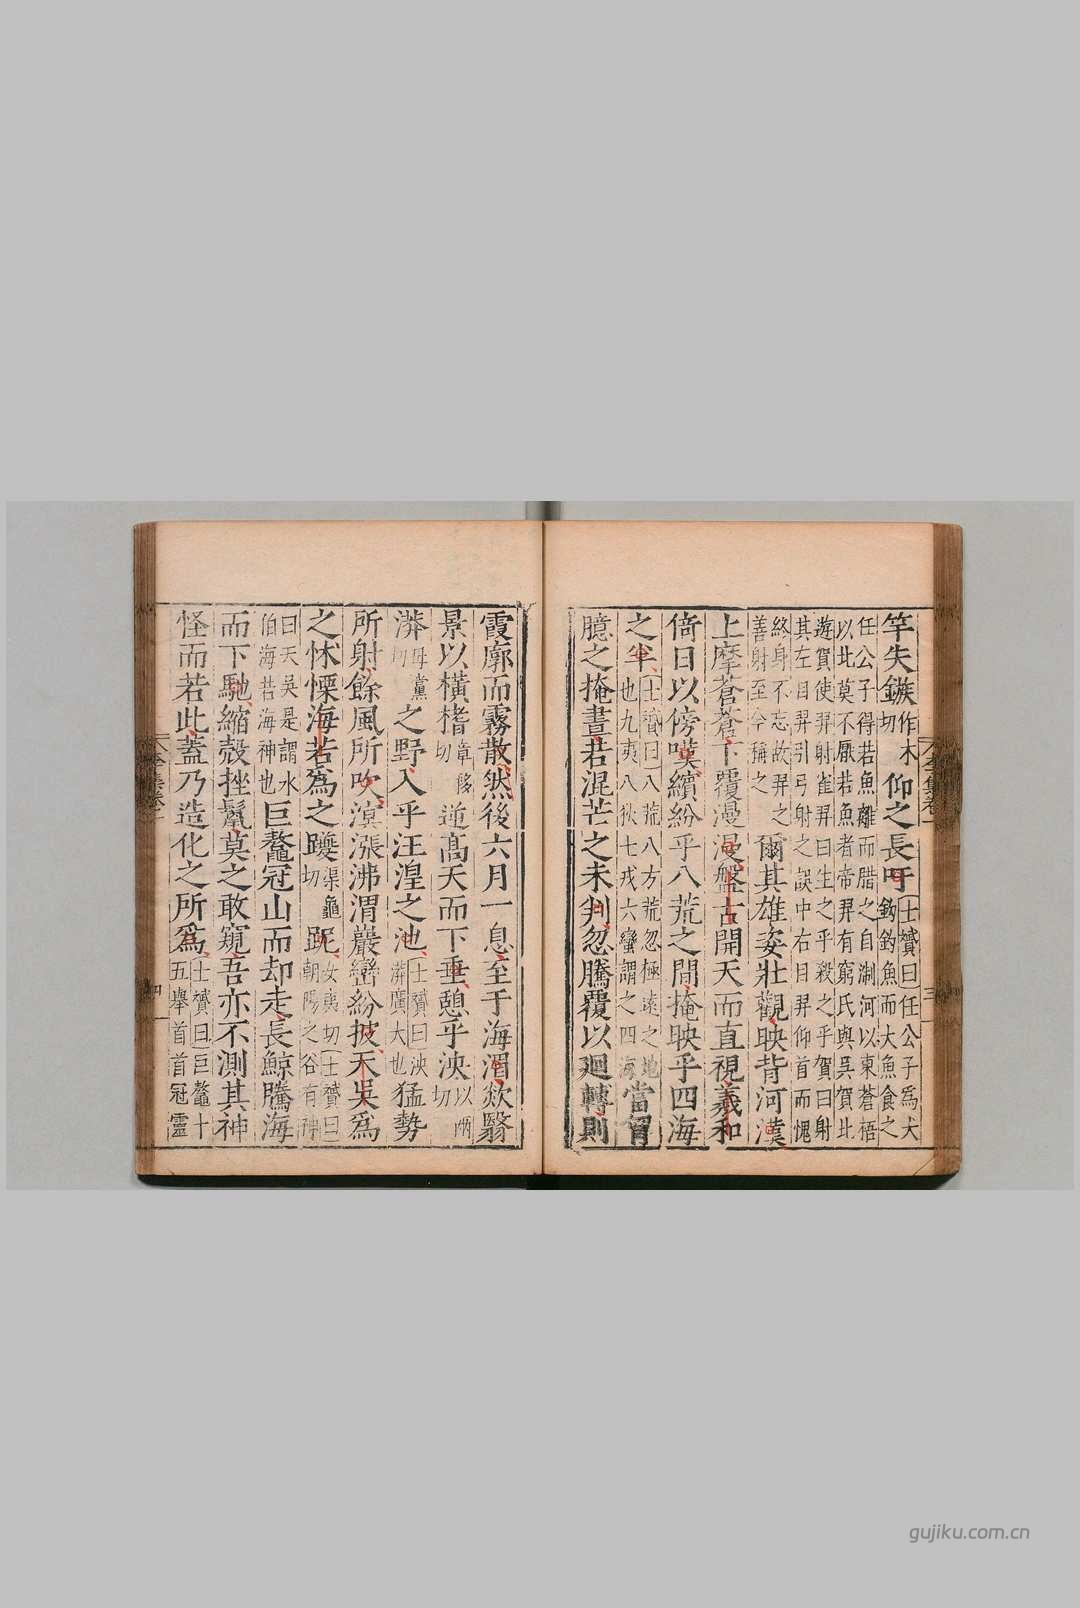 竿失鏃作木切仰之長吁士贇曰任公子為大鈎釣魚而大魚食之
任公子得若魚離而腊之自淛河以東蒼梧以北莫不厭若魚者帝羿有窮氏與吳賀北
遊賀使羿射雀羿曰生之乎殺之乎賀曰射其左目羿引弓射之誤中右目羿仰首而愧
終身不忘故羿之善射至今稱之爾其雄姿壯觀映背河漢
上摩蒼蒼下覆漫漫盤古開天而直視羲和
倚日以傍嘆繽紛乎八荒之間掩映乎四海
之半士贇曰八荒八方荒忽極遠之地也九夷八狄七戎六蠻謂之四海當胷
臆之掩晝若混芒之未判忽騰覆以廻轉則
霞廓而霧散然後六月一息至于海湄欻翳
景以橫㨖章移切逆高天而下垂憩乎泱以兩切
漭母黨切之野入乎汪湟之池士贇曰泱漭廣大也猛勢
所射餘風所吹溟漲沸渭巖巒紛披天吳為
之怵慄海若為之躨渠龜切跜女夷切士贇曰朝陽之谷有神
曰天吳是謂水伯海若海神也巨鼇冠山而却走長鯨騰海
而下馳縮殼挫鬣莫之敢窺吾亦不測其神
怪而若此蓋乃造化之所為士贇曰巨鼇十五舉首首冠靈
李集卷一
三
李集卷一
四
gujiku.com.cn